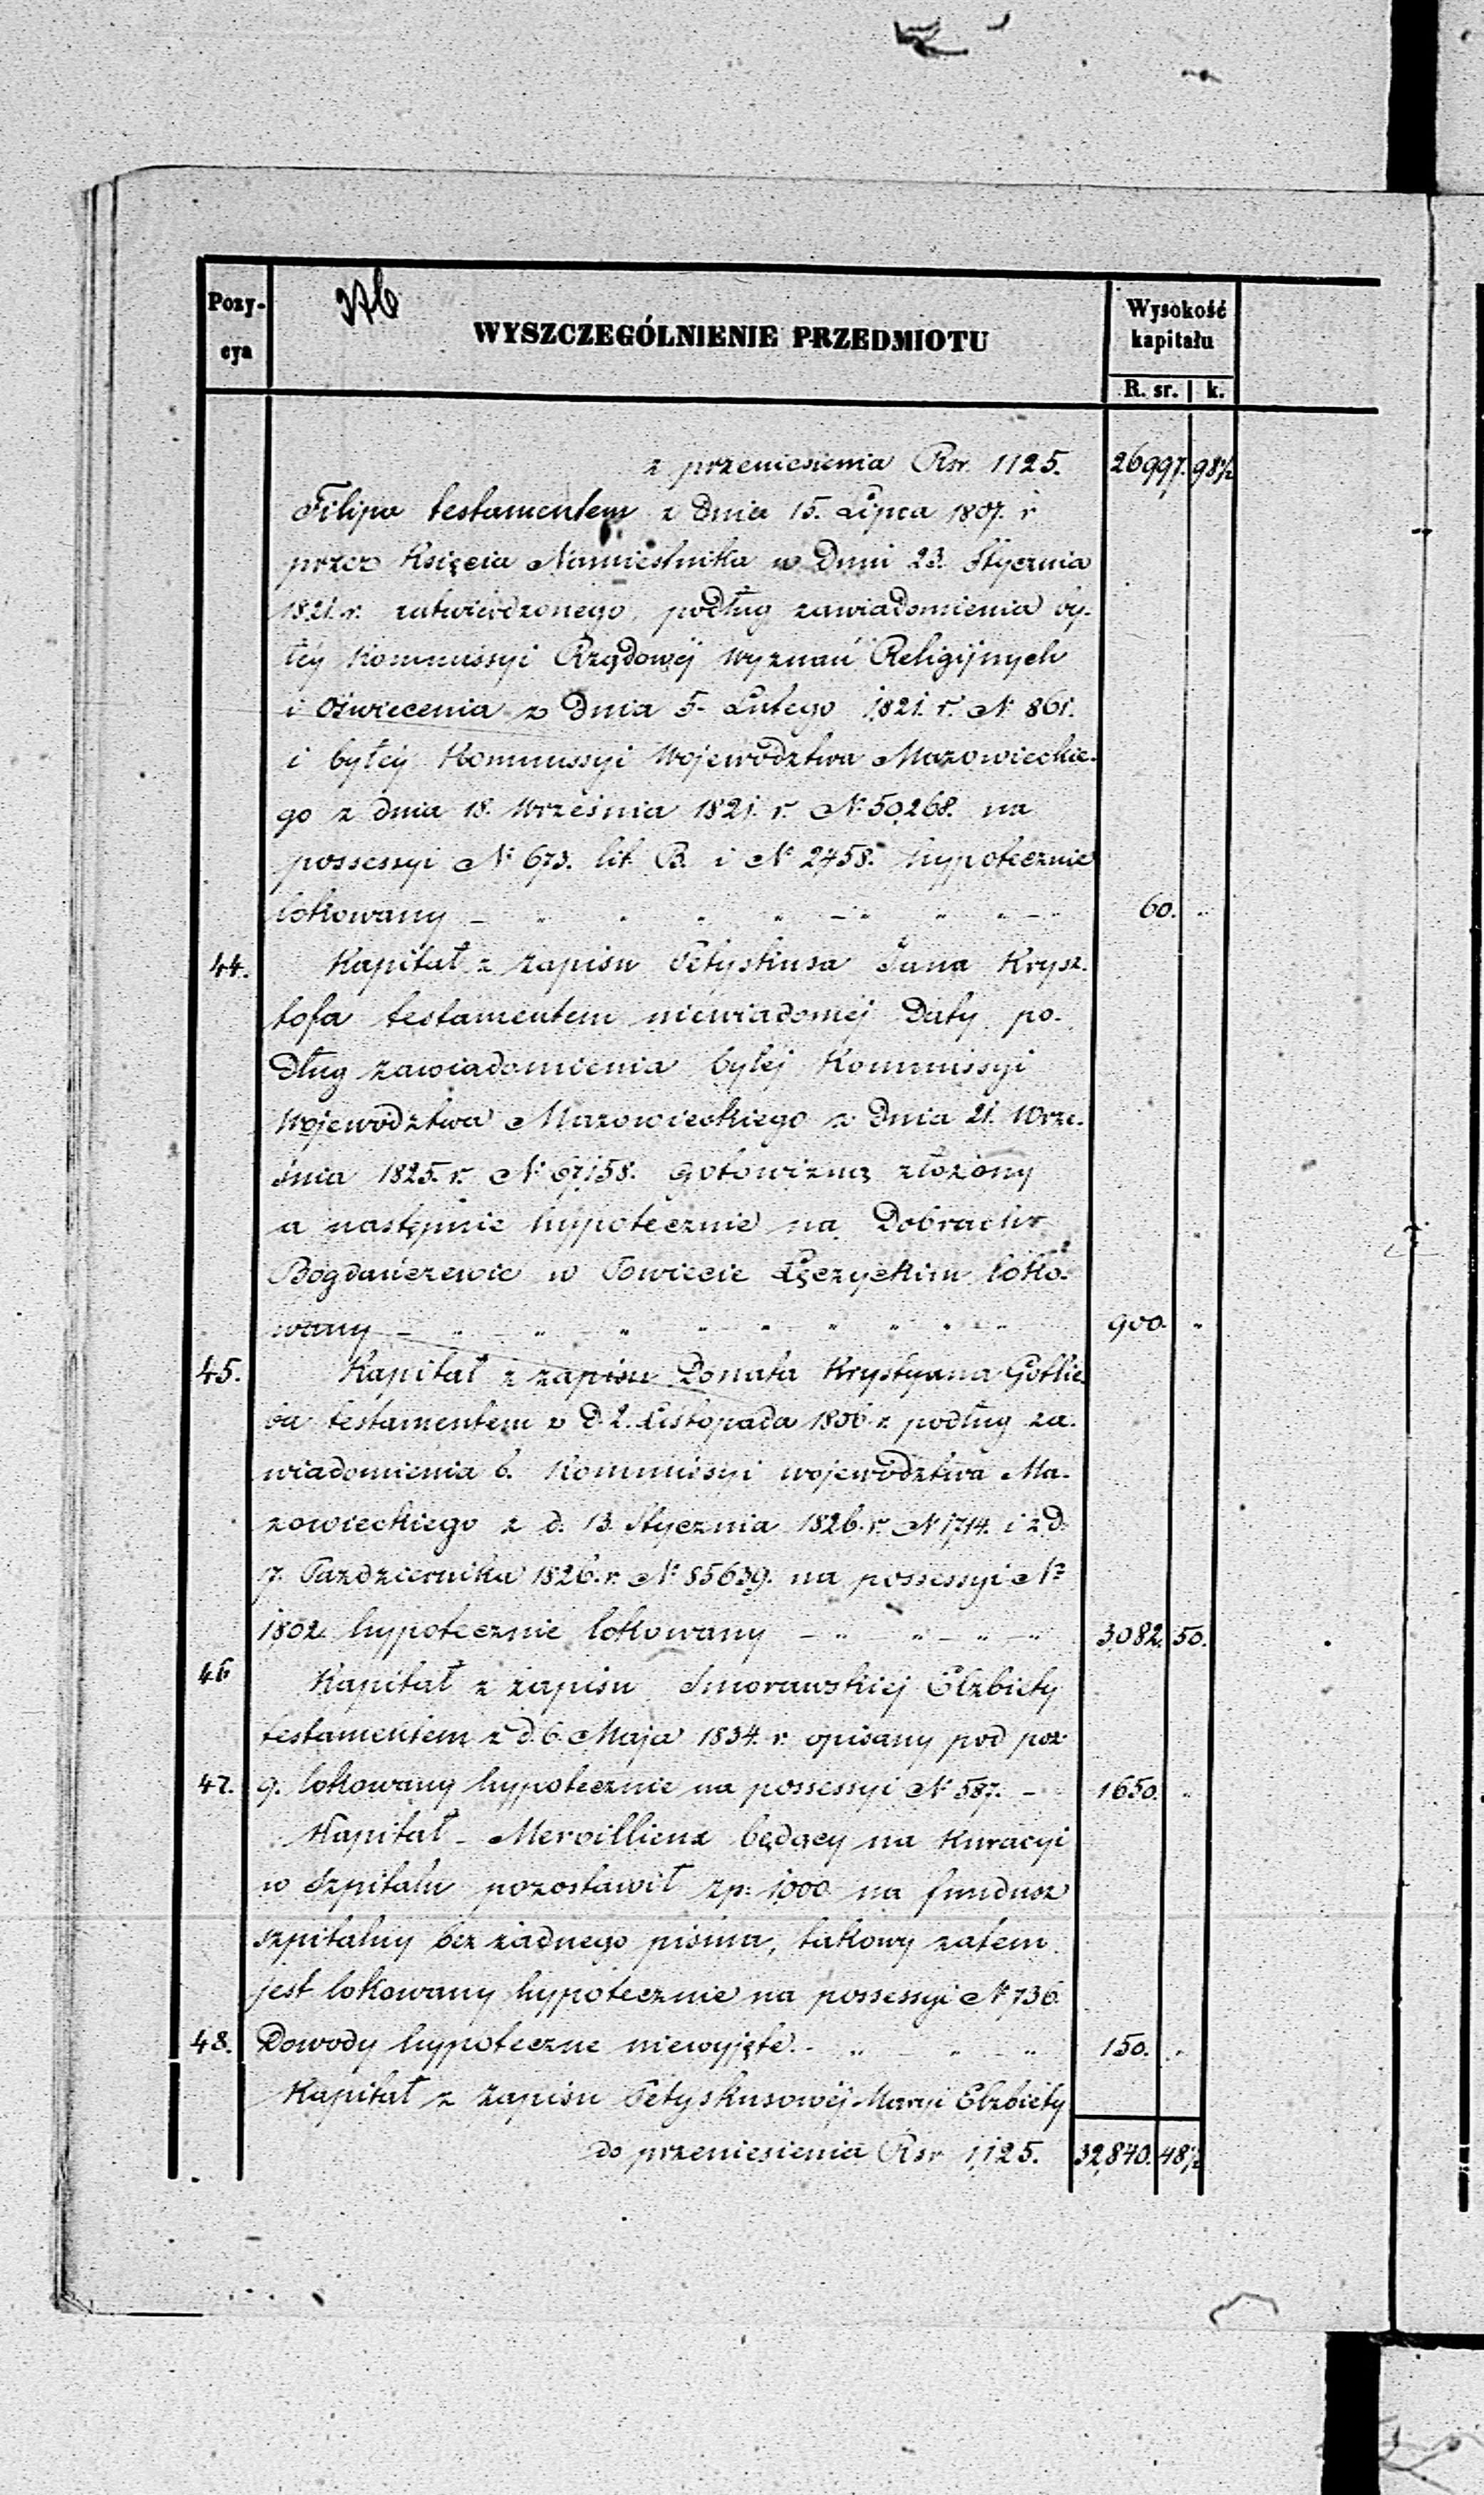 Pozy-
cya
376
WYSZCZEGÓLNIENIE PRZEDMIOTU
Wysokość
kapitału
R. sr. k.
z przeniesienia Rsr. 1125. 26997. 98½
Filipa testamentem z dnia 15. Lipca 1807. r
przez Księcia Namiestnika w dniu 23. Stycznia
1821. r. zatwierdzonego, podług zawiadomienia by-
łéy Kommissyi Rządowéj Wyznań Religijnych
i Oświecenia z dnia 5. Lutego 1821. r. N. 861.
i byłéy Kommissyi Województwa Mazowieckie-
go z dnia 18. Września 1821. r. N. 50,268. na
possessyi N. 673. lit. B. i N. 2458. hypotecznie
lokowany 60. "
44. Kapitał z zapisu Petyskusa Jana Krysz-
tofa testamentem niewiadoméj daty po-
dług zawiadomienia byłéj Kommissyi
Województwa Mazowieckiego z dnia 21. Wrze-
śnia 1825. r. N. 67,158. gotowizną złożony
a następnie hypotecznie na Dobrach
Bogdańczewie w Powiecie Łęczyckim loko-
wany 900. "
45. Kapitał z zapisu Donata Krystyana Gotlie-
ba testamentem z d. 2. Listopada 1806 r. podług za-
wiadomienia b. Kommissyi Województwa Ma-
zowieckiego z d. 13. Stycznia 1826. r. N. 1714. i z d.
7. Pazdziernika 1826. r. N. 85639. na possessyi N.
1802. hypotecznie lokowany 3082. 50.
46 Kapitał z zapisu Smorawskiéj Elżbiety
testamentem z d. 6. Maja 1834. r. opisany pod poz.
47. 9. lokowany hypotecznie na possessyi N. 587. – 1650. "
Kapitał – Mervillieux będący na kuracyi
w Szpitalu pozostawił zp: 1000 na fundusz
szpitalny bez żadnego pisma, takowy zatem
jest lokowany hypotecznie na possessyi N. 736.
48. Dowody hypoteczne niewyjęte. 150. "
Kapitał z zapisu Petyskusowéj Maryi Elżbiety
do przeniesienia Rsr 1,125. 32,840. 48½